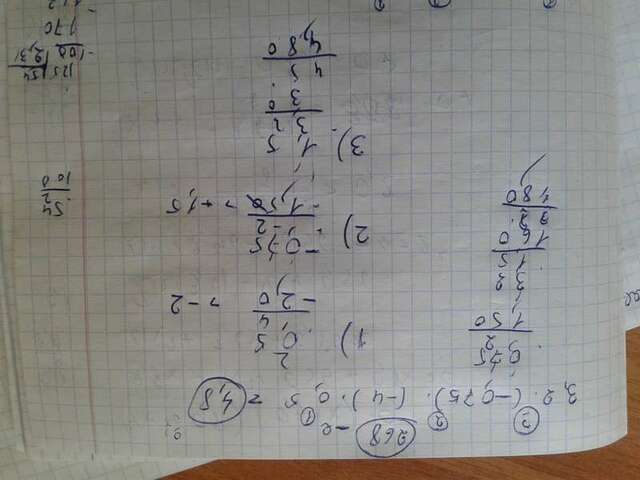 268
-2
3,2 · (-0,75) · (-4) · 0,5 = 4,8
3 2 1
0,75
2
1,50
3 2
1 5
1 6 0
3 2
4 8 0
1) 2
0,5
4
-2,0 > -2
2) -0,75
-2
-1,50 > +1,5
3) 1,5
3 2
3 0
4 5
4,80
54
2
100
125 54
-100 2,31
170